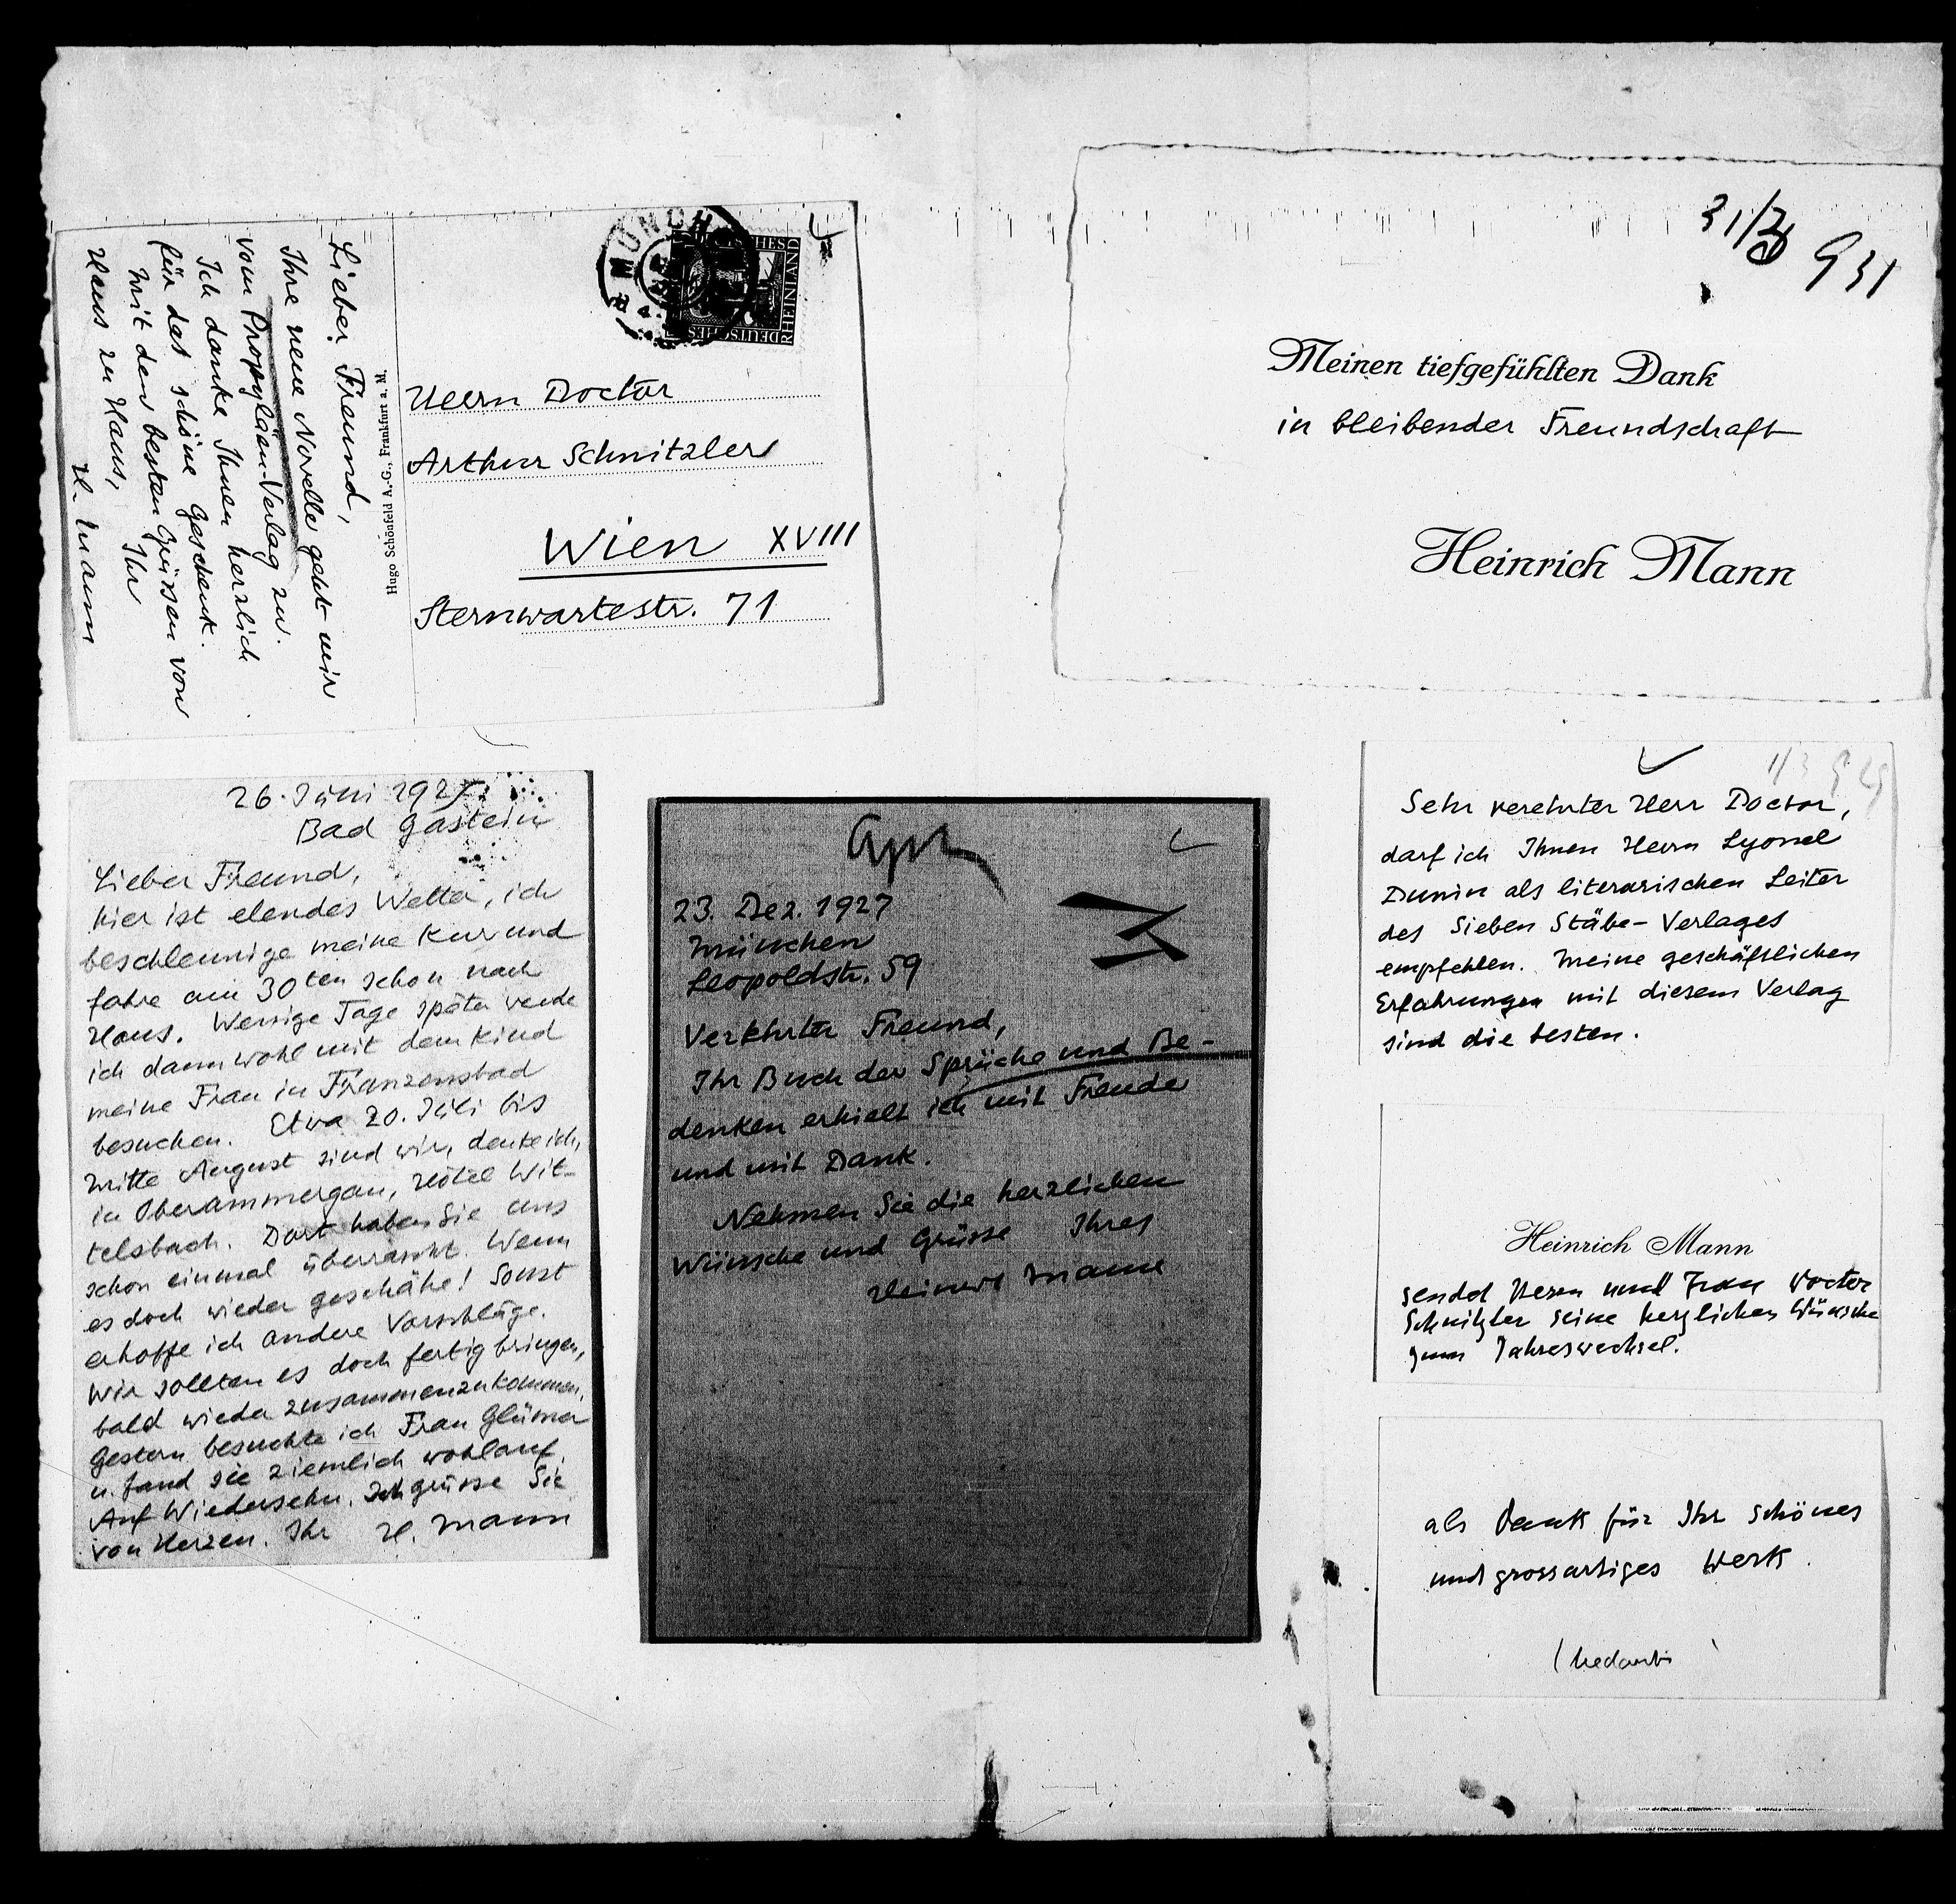 Lieber Freund,
Ihre neue Novelle geht mir
vom Propyläen-Verlag zu.
Ich danke Ihnen herzlich
für das schöne Geschenk.
Mit den besten Grüssen von
Haus zu Haus, Ihr
H. Mann
Hugo Schönfeld A.-G., Frankfurt a. M.
MÜNCH
DEUTSCHES
RHEINLAND
Herrn Doctor
Arthur Schnitzler
Wien XVIII
Sternwartestr. 71
931
Meinen tiefgefühlten Dank
in bleibender Freundschaft
Heinrich Mann
26. Juni 192
Bad Gastein
Lieber Freund,
hier ist elendes Wetter, ich
beschleunige meine Kur und
fahre am 30ten schon nach
Haus. Wenige Tage später werde
ich dann wohl mit dem Kind
meine Frau in Franzensbad
besuchen. Etwa 20. Juli bis
Mitte August sind wir, denke ich,
in Oberammergau, Hôtel Wit-
telsbach. Dort haben Sie uns
schon einmal überrascht. Wenn
es doch wieder geschähe! Sonst
erhoffe ich andere Vorschläge.
Wir sollten es doch fertig bringen,
bald wieder zusammenzukommen.
Gestern besuchte ich Frau Glümer
u. fand sie ziemlich wohlauf.
Auf Wiedersehn. Ich grüsse Sie
von Herzen. Ihr H. Mann
23. Dez. 1927
München
Leopoldstr. 59
Verehrter Freund,
Ihr Buch der Sprüche und Be-
denken erhielt ich mit Freude
und mit Dank.
Nehmen Sie die herzlichen
Wünsche und Grüsse Ihres
Heinrich Mann
Sehr verehrter Herr Doctor,
darf ich Ihnen Herrn Lyonel
Dunin als literarischen Leiter
des Sieben Stäbe-Verlages
empfehlen. Meine geschäftlichen
Erfahrungen mit diesem Verlag
sind die besten.
Heinrich Mann
sendet Herrn und Frau Doctor
Schnitzler seine herzlichen Wünsche
zum Jahreswechsel.
als Dank für Ihr schönes
und grossartiges Werk.